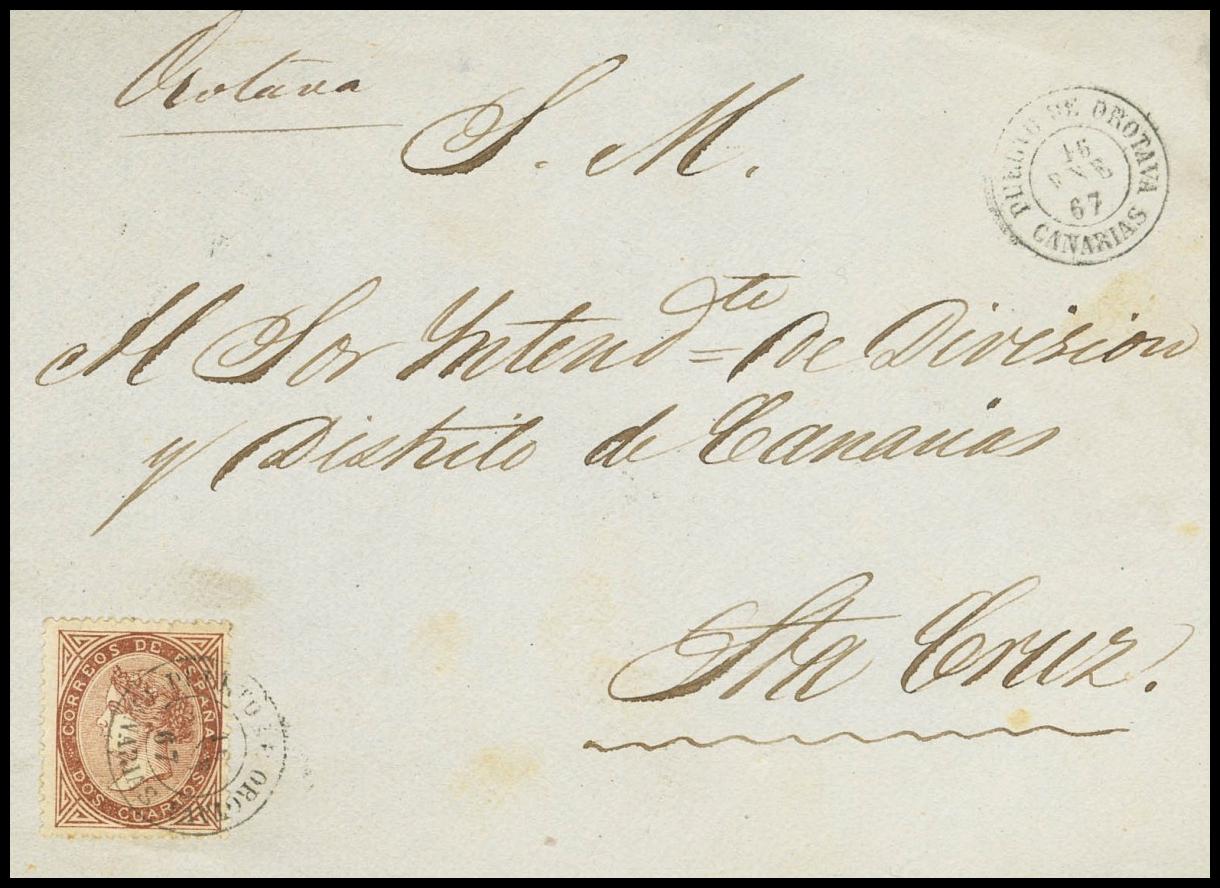 Orotava
S. M.
PUERTO DE OROTAVA
16
ENE
67
CANARIAS
Al Sor Intendte de Division
y Distrito de Canarias
Sta Cruz.
CORREOS DE ESPAÑA
DOS CUARTOS
67